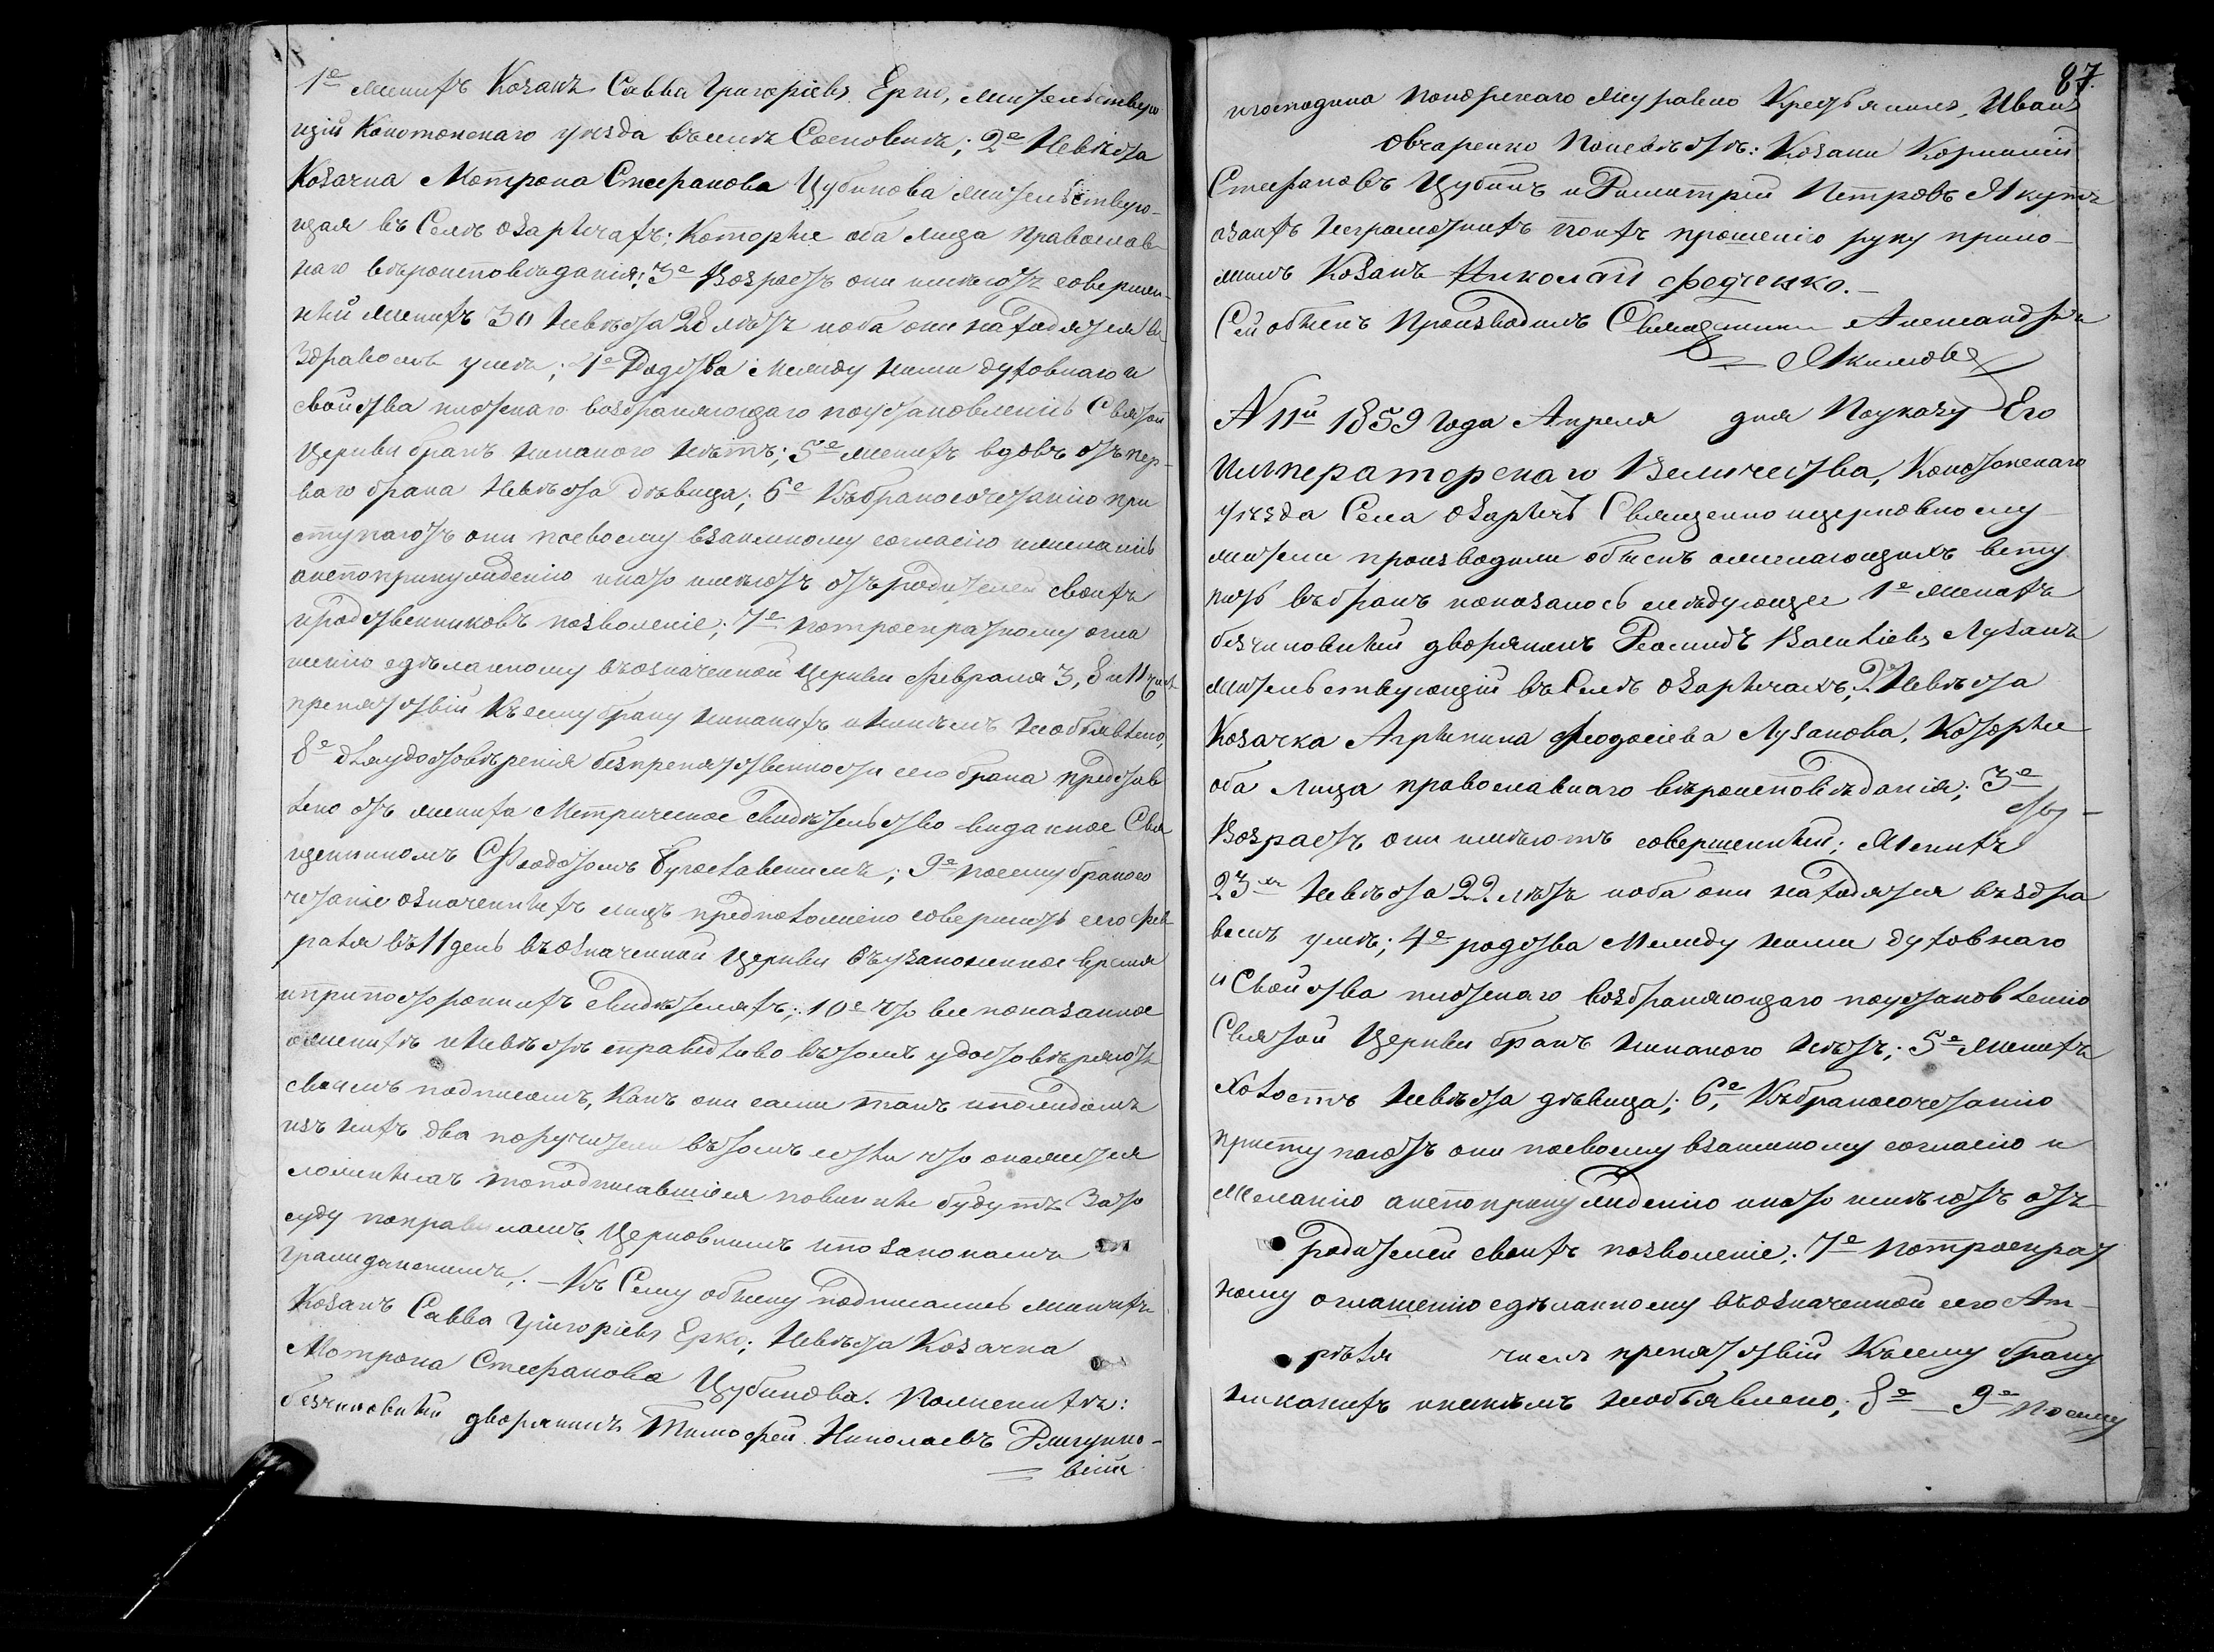 1е Жених Козакъ Савва Григоріевъ Ерко, жительствую
щій Конотопскаго уѣзда въ селѣ Сосновкѣ; 2е Невѣста
Козачка Мотрона Стефанова Цубинова жительствую-
щая въ Селѣ Озарычахъ; Которые оба лица Православ-
наго вѣроисповѣданія; 3е Возрастъ они имѣютъ совершен-
ный женихъ 30 Невѣста 28 лѣтъ и оба они находятся въ
Здравомъ умѣ; 4е Родства между ними духовнаго и
свойства плотскаго возбраняющаго по установленію Святой
Церкви бракъ никакого нѣтъ; 5е женихъ вдовъ отъ пер-
ваго брака Невѣста дѣвица; 6е Къ бракосочетанію при
ступаютъ они по своему взаимному согласію и желанію
а не по принужденію и на то имѣютъ отъ родителей своихъ
и родственниковъ позволеніе; 7е по троекратному огла
шенію сдѣланному въ означенной Церкви Февраля 3, 8 и 11 числ
препятствій къ сему браку никакихъ и никѣмъ не объявлено,
8е для удостовѣренія безпрепятственности сего брака представ
лено отъ жениха Метрическое свидѣтельство выданное Свя
щенникомъ Феодотомъ Бугославскимъ; 9е по сему бракосо
четаніе означенныхъ лицъ предположено совершить сего Фев
раля въ 11 день въ означенной Церкви въ узаконенное время
и при постороннихъ свидѣтеляхъ; 10е что все показанное
о женихѣ и Невѣстѣ справедливо въ томъ удостовѣряютъ
своимъ подписомъ, Какъ они сами такъ и по каждомъ
изъ нихъ два поручителя въ томъ естьли что окажется
ложнымъ то подписавшіеся повинны будутъ За то
суду по правиламъ Церковнымъ и по законамъ
гражданскимъ. – Къ Сему обыску подписались женихъ
Козакъ Савва Григоріевъ Ерко; Невѣста Козачка
Мотрона Стефанова Цубинова. По женихѣ:
безчиновный дворянинъ Тимофей Николаевъ
87.
и господина Крестьянинъ, Иванъ
Овчаренко По невѣстѣ: Козаки Корнилій
Стефановъ Цубинъ и Димитрій Петровъ Якутъ
а за нихъ неграмотныхъ по ихъ прошенію руку прило-
жилъ Козакъ Николай Федченко.–
Сей обыскъ Производилъ Священникъ Александръ
Якимовъ
N 11й 1859 Года Апреля дня По указу Его
Императорскаго Величества, Конотопскаго
уѣзда Села Озарычъ Священно и церковнослу-
жители производили обыскъ о желающихъ всту
пить въ бракъ и оказалось слѣдующее 1е женихъ
безчиновный дворянинъ Васильевъ Лузанъ
жительствующій въ Селѣ Озарычахъ, 2е Невѣста
Козачка Агрыпина Феодосіева Лузанова, Которые
оба Лица православнаго вѣроисповѣданія; 3е
Возрастъ они имѣютъ совершенный; Женихъ
23хъ Невѣста 22 лѣтъ и оба они находятся въ здра
вомъ умѣ; 4е родства между ними духовнаго
и Свойства плотскаго возбраняющаго по установленію
Святой Церкви бракъ никакого нѣтъ; 5е Женихъ
Холостъ Невѣста дѣвица; 6е, Къ бракосочетанію
приступаютъ они по своему взаимному согласію и
желанію а не по принужденію и на то имѣютъ отъ
родителей своихъ позволеніе; 7е по троекрат
ному оглашенію сдѣланному въ означенной сего Ап-
рѣля числъ препятствій Къ сему браку
никакихъ и никѣмъ не объявлено; 8е 9е По сему